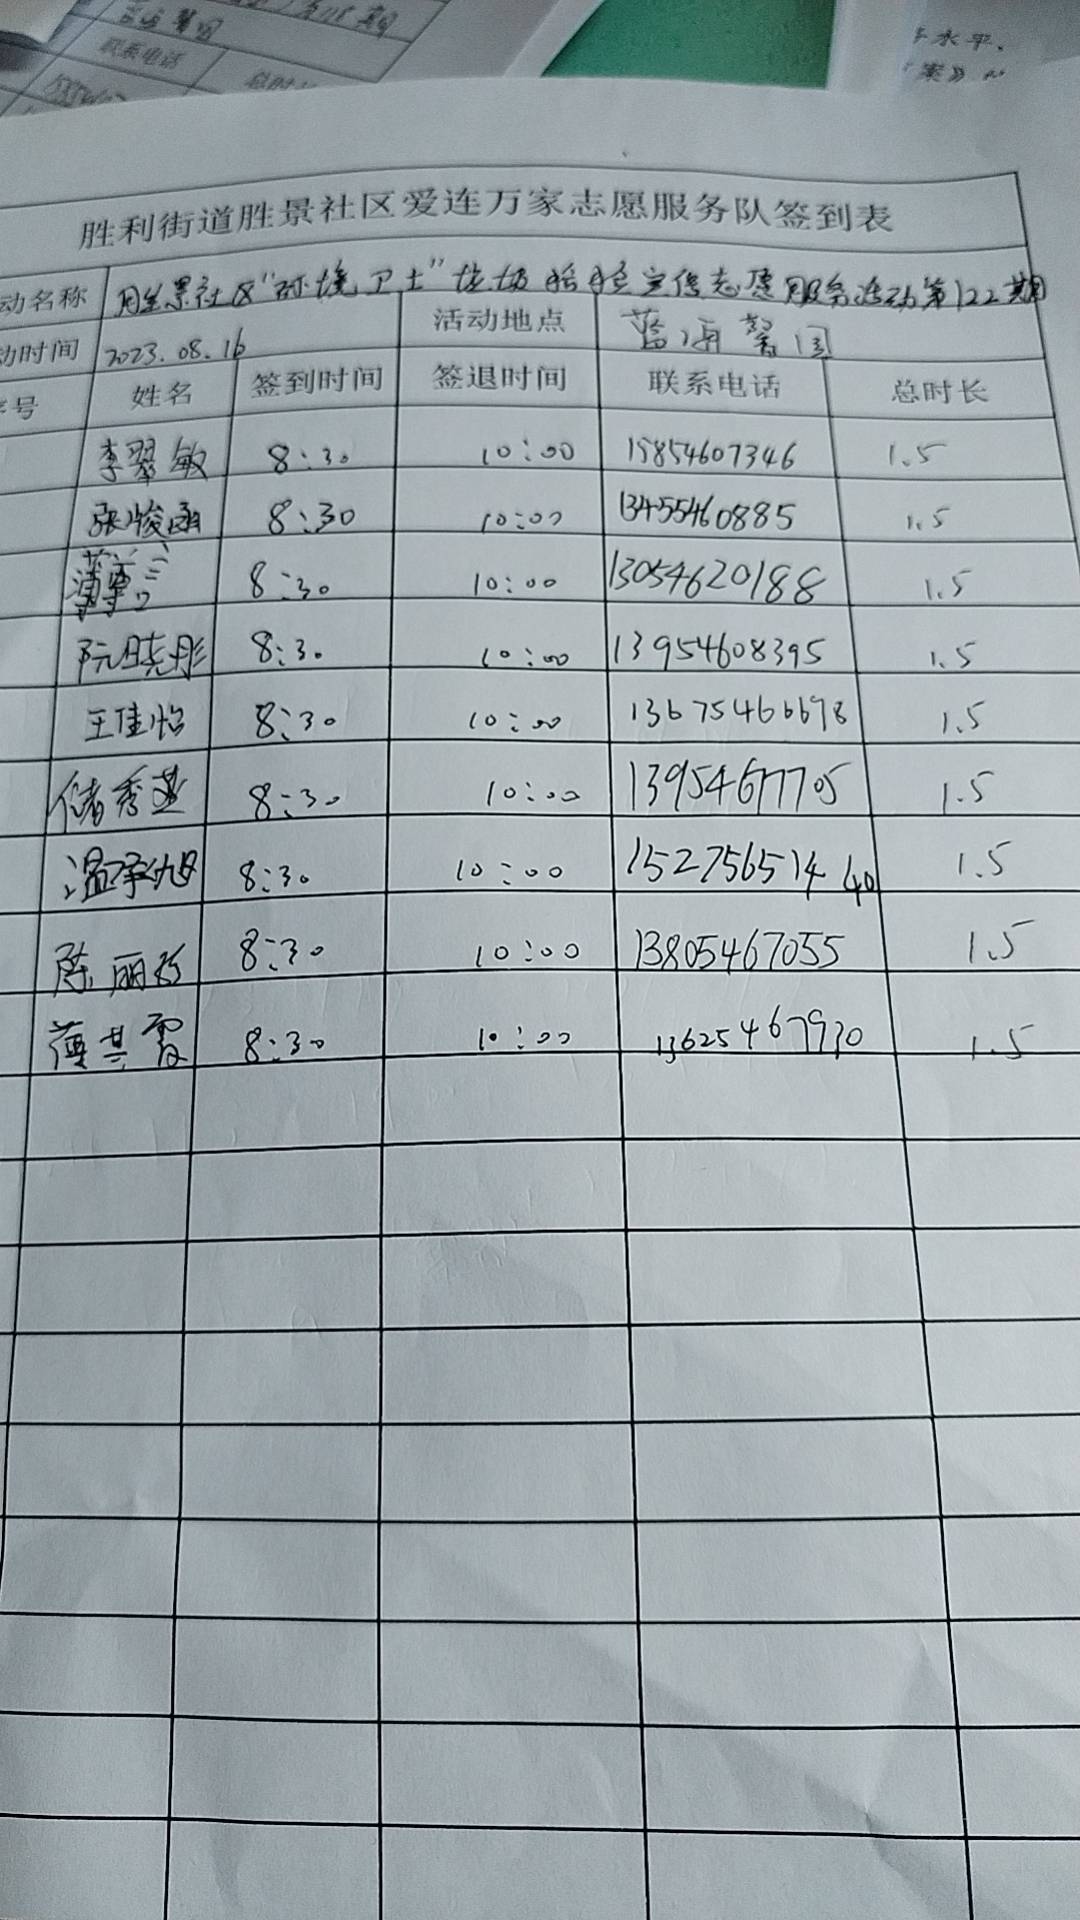 联系电话
水平、
胜利街道胜景社区爱连万家志愿服务队签到表
动名称 胜景社区“环境卫士”垃圾 宣传志愿服务活动第122期
动时间 2023.08.16 活动地点 蓝海馨园
号 姓名 签到时间 签退时间 联系电话 总时长
李翠敏 8:30 10:00 15854607346 1.5
张峻函 8:30 10:00 13455460885 1.5
8:30 10:00 13054620188 1.5
阮晓彤 8:30 10:00 13954608395 1.5
王佳怡 8:30 10:00 13675466698 1.5
储秀莲 8:30 10:00 13954677705 1.5
温承旭 8:30 10:00 15275651440 1.5
陈丽珍 8:30 10:00 13805467055 1.5
薄其霞 8:30 10:00 13625467930 1.5